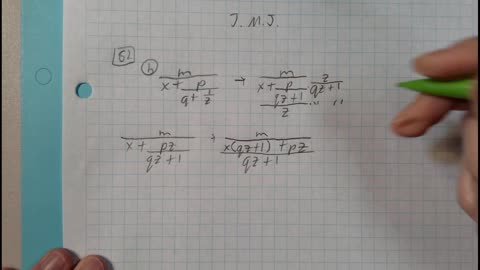 J. M. J.
82
b) m/(x + p/(q + 1/z)) → m/(x + p/((qz+1)/z)) z/(qz+1) " "
m/(x + pz/(qz+1)) → m/((x(qz+1) + pz)/(qz+1))